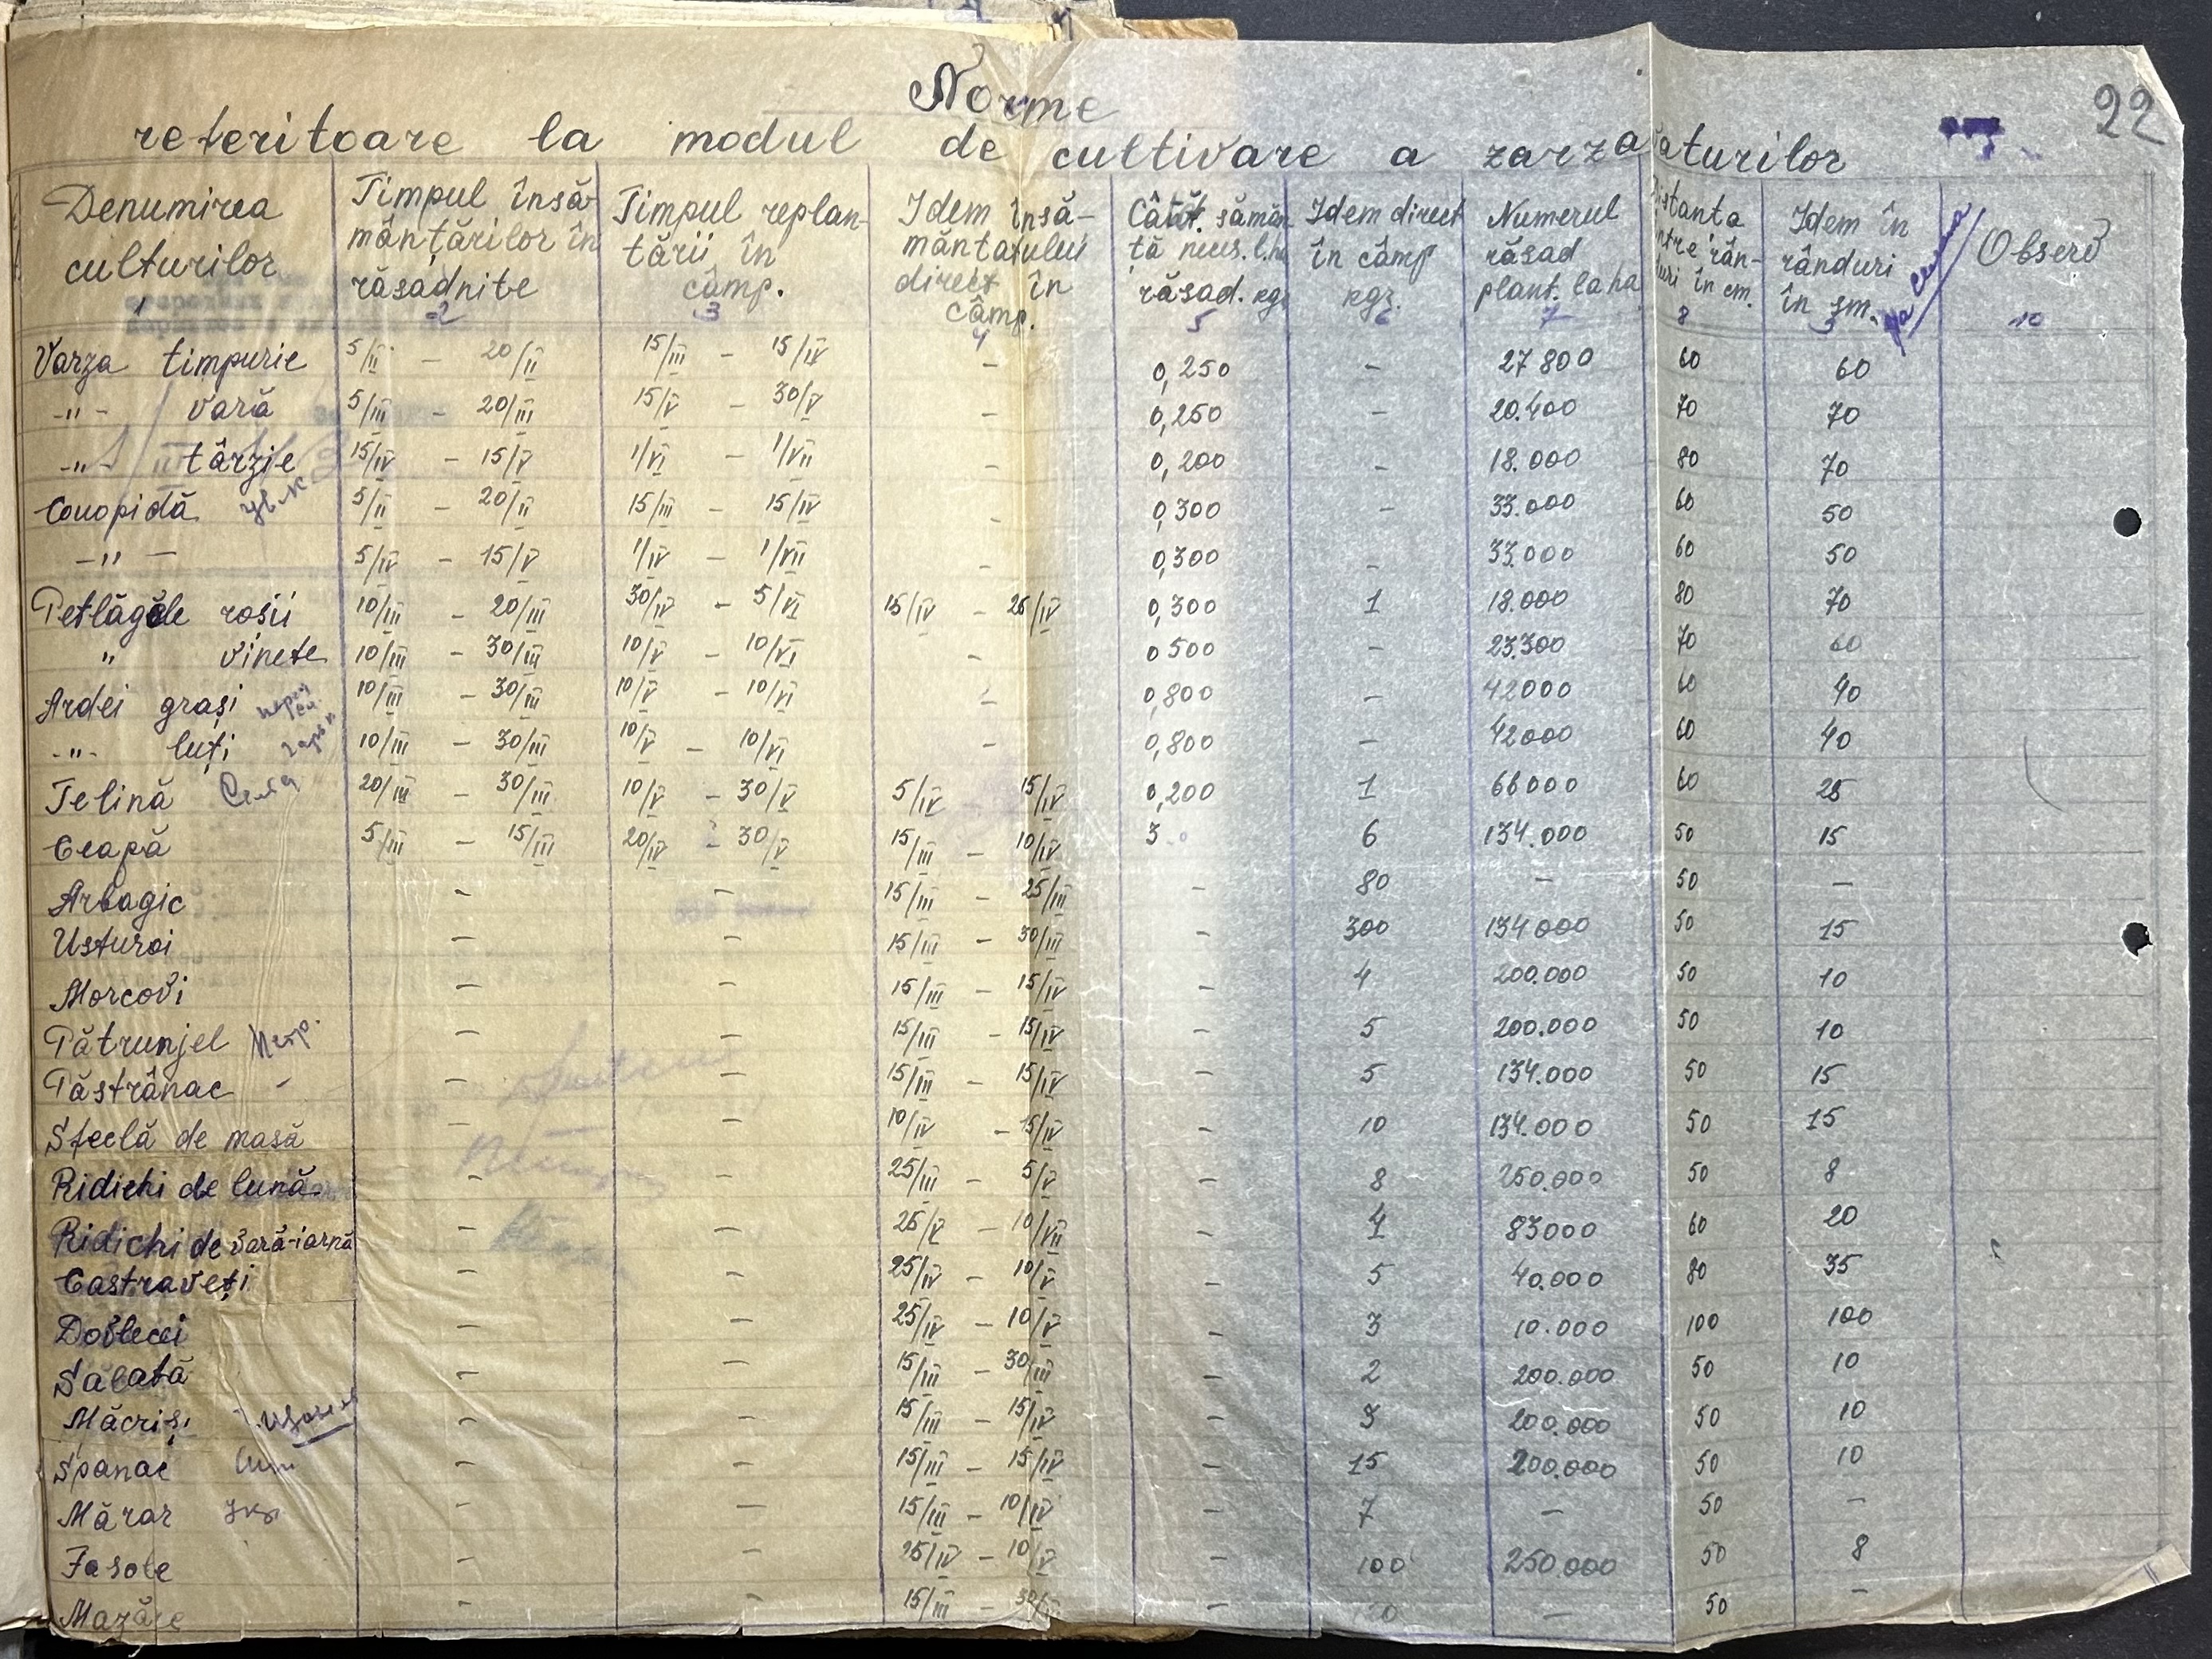 22
Norme
referitoare la modul de cultivare a zarzavaturilor
Denumirea culturilor | Timpul însămânțărilor în răsadnite | Timpul replantării în câmp. | Idem însământatului direct în câmp. | Cătăt. sămăntă neces. l. ha răsad. kgr | Idem direct în câmp kgr. | Numerul răsad plant. la ha | Distanta intre rânduri în cm. | Idem în rânduri în sm. | Observ
1 | 2 | 3 | 4 | 5 | 6 | 7 | 8 | 9 | 10
Varza timpurie | 5/II - 20/II | 15/III - 15/IV | - | 0,250 | - | 27800 | 60 | 60
-"- vară | 5/III - 20/III | 15/V - 30/V | - | 0,250 | - | 20.400 | 70 | 70
-"- târzie | 15/IV - 15/V | 1/VI - 1/VII | - | 0,200 | - | 18.000 | 80 | 70
Conopidă | 5/II - 20/II | 15/III - 15/IV | - | 0,300 | - | 33.000 | 60 | 50
-"- | 5/IV - 15/V | 1/IV - 1/VII | - | 0,300 | - | 33.000 | 60 | 50
Petlăgele rosii | 10/III - 20/III | 30/IV - 5/VI | 15/IV - 25/IV | 0,300 | 1 | 18.000 | 80 | 70
" vinete | 10/III - 30/III | 10/V - 10/VI | - | 0500 | - | 23.300 | 70 | 60
Ardei grași | 10/III - 30/III | 10/V - 10/VI | - | 0,800 | - | 42000 | 60 | 40
-"- luți | 10/III - 30/III | 10/V - 10/VI | - | 0,800 | - | 42000 | 60 | 40
Telină | 20/III - 30/III | 10/V - 30/V | 5/IV 15/IV | 0,200 | 1 | 66000 | 60 | 25
Ceapă | 5/III - 15/III | 20/IV - 30/V | 15/III - 10/IV | 3 | 6 | 134.000 | 50 | 15
Arbagic | - | - | 15/III - 25/III | - | 80 | - | 50 | -
Usturoi | - | - | 15/III - 30/III | - | 300 | 134000 | 50 | 15
Morcovi | - | - | 15/III - 15/IV | - | 4 | 200.000 | 50 | 10
Pătrunjel | - | - | 15/III - 15/IV | - | 5 | 200.000 | 50 | 10
Păstrânac - | - | - | 15/III - 15/IV | - | 5 | 134.000 | 50 | 15
Sfeclă de masă | - | - | 10/IV - 15/IV | - | 10 | 134.000 | 50 | 15
Ridichi de lună | - | - | 25/III - 5/V | - | 8 | 250.000 | 50 | 8
Ridichi de vară-iarnă | - | - | 25/V - 10/VII | - | 4 | 83000 | 60 | 20
Castraveți | - | - | 25/IV - 10/V | - | 5 | 40.000 | 80 | 35
Dovlecei | - | - | 25/IV - 10/V | - | 3 | 10.000 | 100 | 100
Salată | - | - | 15/III - 30/III | - | 2 | 200.000 | 50 | 10
Măcriș | - | - | 15/III - 15/IV | - | 3 | 200.000 | 50 | 10
Spanac | - | - | 15/III - 15/IV | - | 15 | 200.000 | 50 | 10
Mărar | - | - | 15/III - 10/IV | - | 7 | - | 50 | -
Fasole | - | - | 25/IV - 10/V | - | 100 | 250.000 | 50 | 8
Mazăre | - | - | 15/III - | - | | - | 50 | -